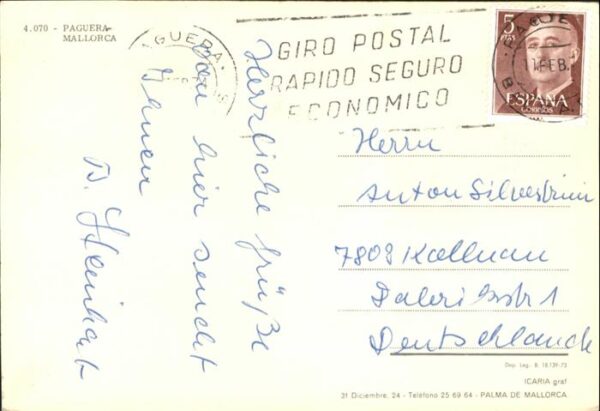 4.070 - PAGUERA-
MALLORCA
PAGUERA
GIRO POSTAL
RAPIDO SEGURO
ECONOMICO
5
PTAS
ESPAÑA
CORREOS
FEB
Herzliche Grüße
von hier sendet
Ihnen
Herrn
Anton Silvestrini
7809 Kollnau
1
Deutschland
Dep. Leg. B. 18.139-73
ICARIA graf
31 Diciembre, 24 - Teléfono 25 69 64 - PALMA DE MALLORCA